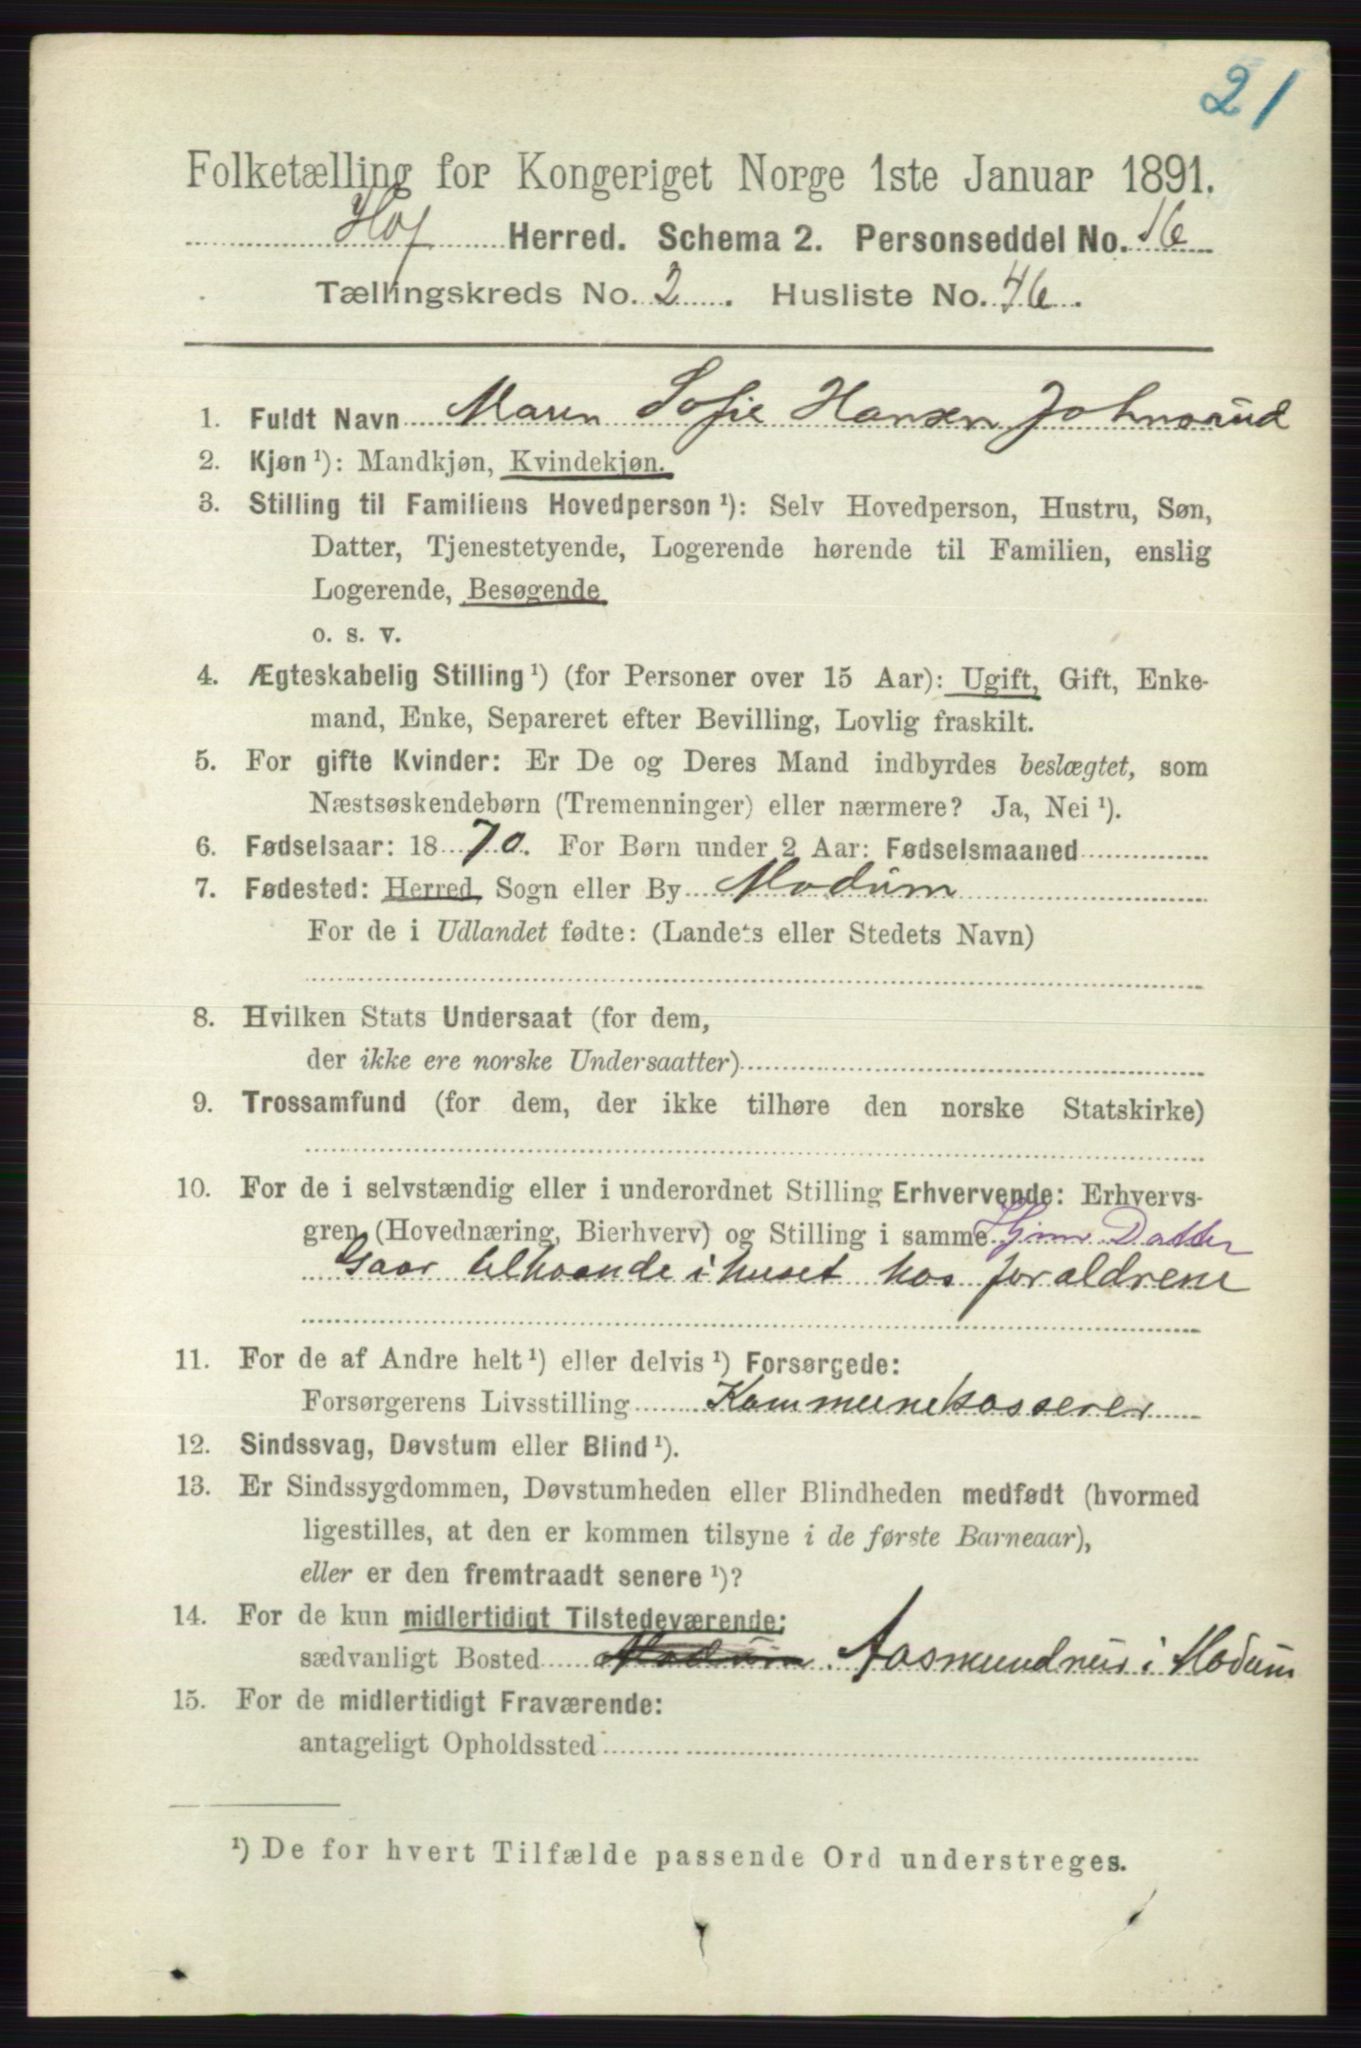 21
Folketælling for Kongeriget Norge 1ste Januar 1891.
Hof Herred. Schema 2. Personseddel No. 16
Tællingskreds No. 2. Husliste No. 46.
1. Fuldt Navn Maren Sofie Hansen Johnsrud
2. Kjøn ¹): Mandkjøn, Kvindekjøn.
3. Stilling til Familiens Hovedperson ¹): Selv Hovedperson, Hustru, Søn,
Datter, Tjenestetyende, Logerende hørende til Familien, enslig
Logerende, Besøgende
o. s. v.
4. Ægteskabelig Stilling ¹) (for Personer over 15 Aar): Ugift, Gift, Enke-
mand, Enke, Separeret efter Bevilling, Lovlig fraskilt.
5. For gifte Kvinder: Er De og Deres Mand indbyrdes beslægtet, som
Næstsøskendebørn (Tremenninger) eller nærmere? Ja, Nei ¹).
6. Fødselsaar: 1870. For Børn under 2 Aar: Fødselsmaaned
7. Fødested: Herred, Sogn eller By Modum
For de i Udlandet fødte: (Landets eller Stedets Navn)
8. Hvilken Stats Undersaat (for dem,
der ikke ere norske Undersaatter)
9. Trossamfund (for dem, der ikke tilhøre den norske Statskirke)
10. For de i selvstændig eller i underordnet Stilling Erhvervende: Erhvervs-
gren (Hovednæring, Bierhverv) og Stilling i samme Hjmv Datter
Gaar tilhaande i huset hos foraldrene
11. For de af Andre helt ¹) eller delvis ¹) Forsørgede:
Forsørgerens Livsstilling Kommunekasserer
12. Sindssvag, Døvstum eller Blind ¹).
13. Er Sindssygdommen, Døvstumheden eller Blindheden medfødt (hvormed
ligestilles, at den er kommen tilsyne i de første Barneaar),
eller er den fremtraadt senere ¹)?
14. For de kun midlertidigt Tilstedeværende:
sædvanligt Bosted Modum Aasmundrud i Modum
15. For de midlertidigt Fraværende:
antageligt Opholdssted
¹) De for hvert Tilfælde passende Ord understreges.